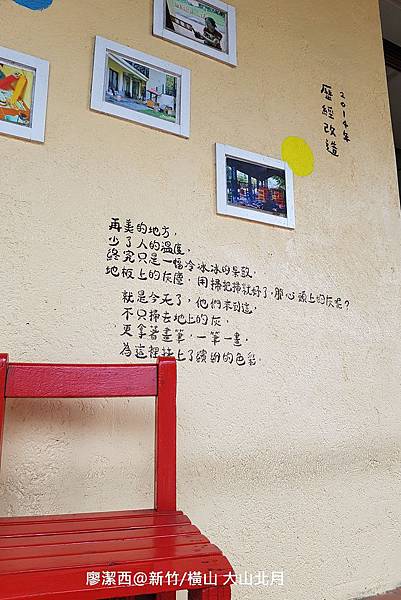 2014年
歷經改造
再美的地方,
少了人的溫度,
終究只是一幢冷冰冰的景致,
地板上的灰塵,用掃把掃就好了,那心頭上的灰呢?
就是今天了,他們來到這,
不只掃去地上的灰,
更拿著畫筆,一筆一畫,
為這裡抹上了繽紛的色彩.
廖潔西@新竹/橫山 大山北月